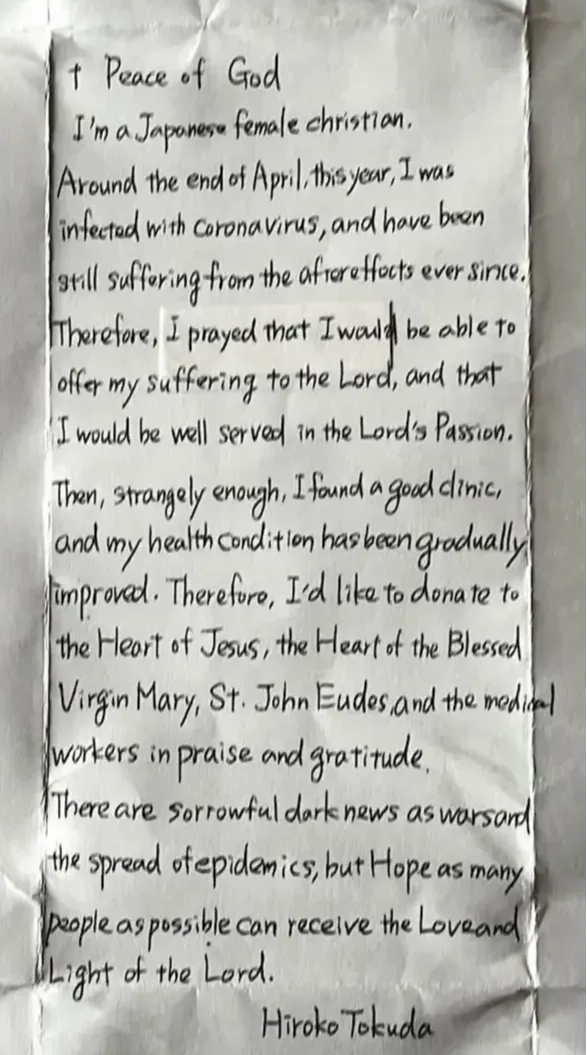 † Peace of God
I'm a Japanese female christian.
Around the end of April, this year, I was
infected with coronavirus, and have been
still suffering from the aftereffects ever since.
Therefore, I prayed that I would be able to
offer my suffering to the Lord, and that
I would be well served in the Lord's Passion.
Then, strangely enough, I found a good clinic,
and my health condition has been gradually
improved. Therefore, I'd like to donate to
the Heart of Jesus, the Heart of the Blessed
Virgin Mary, St. John Eudes, and the medical
workers in praise and gratitude.
There are sorrowful dark news as wars and
the spread of epidemics, but Hope as many
people as possible can receive the Love and
Light of the Lord.
Hiroko Tokuda